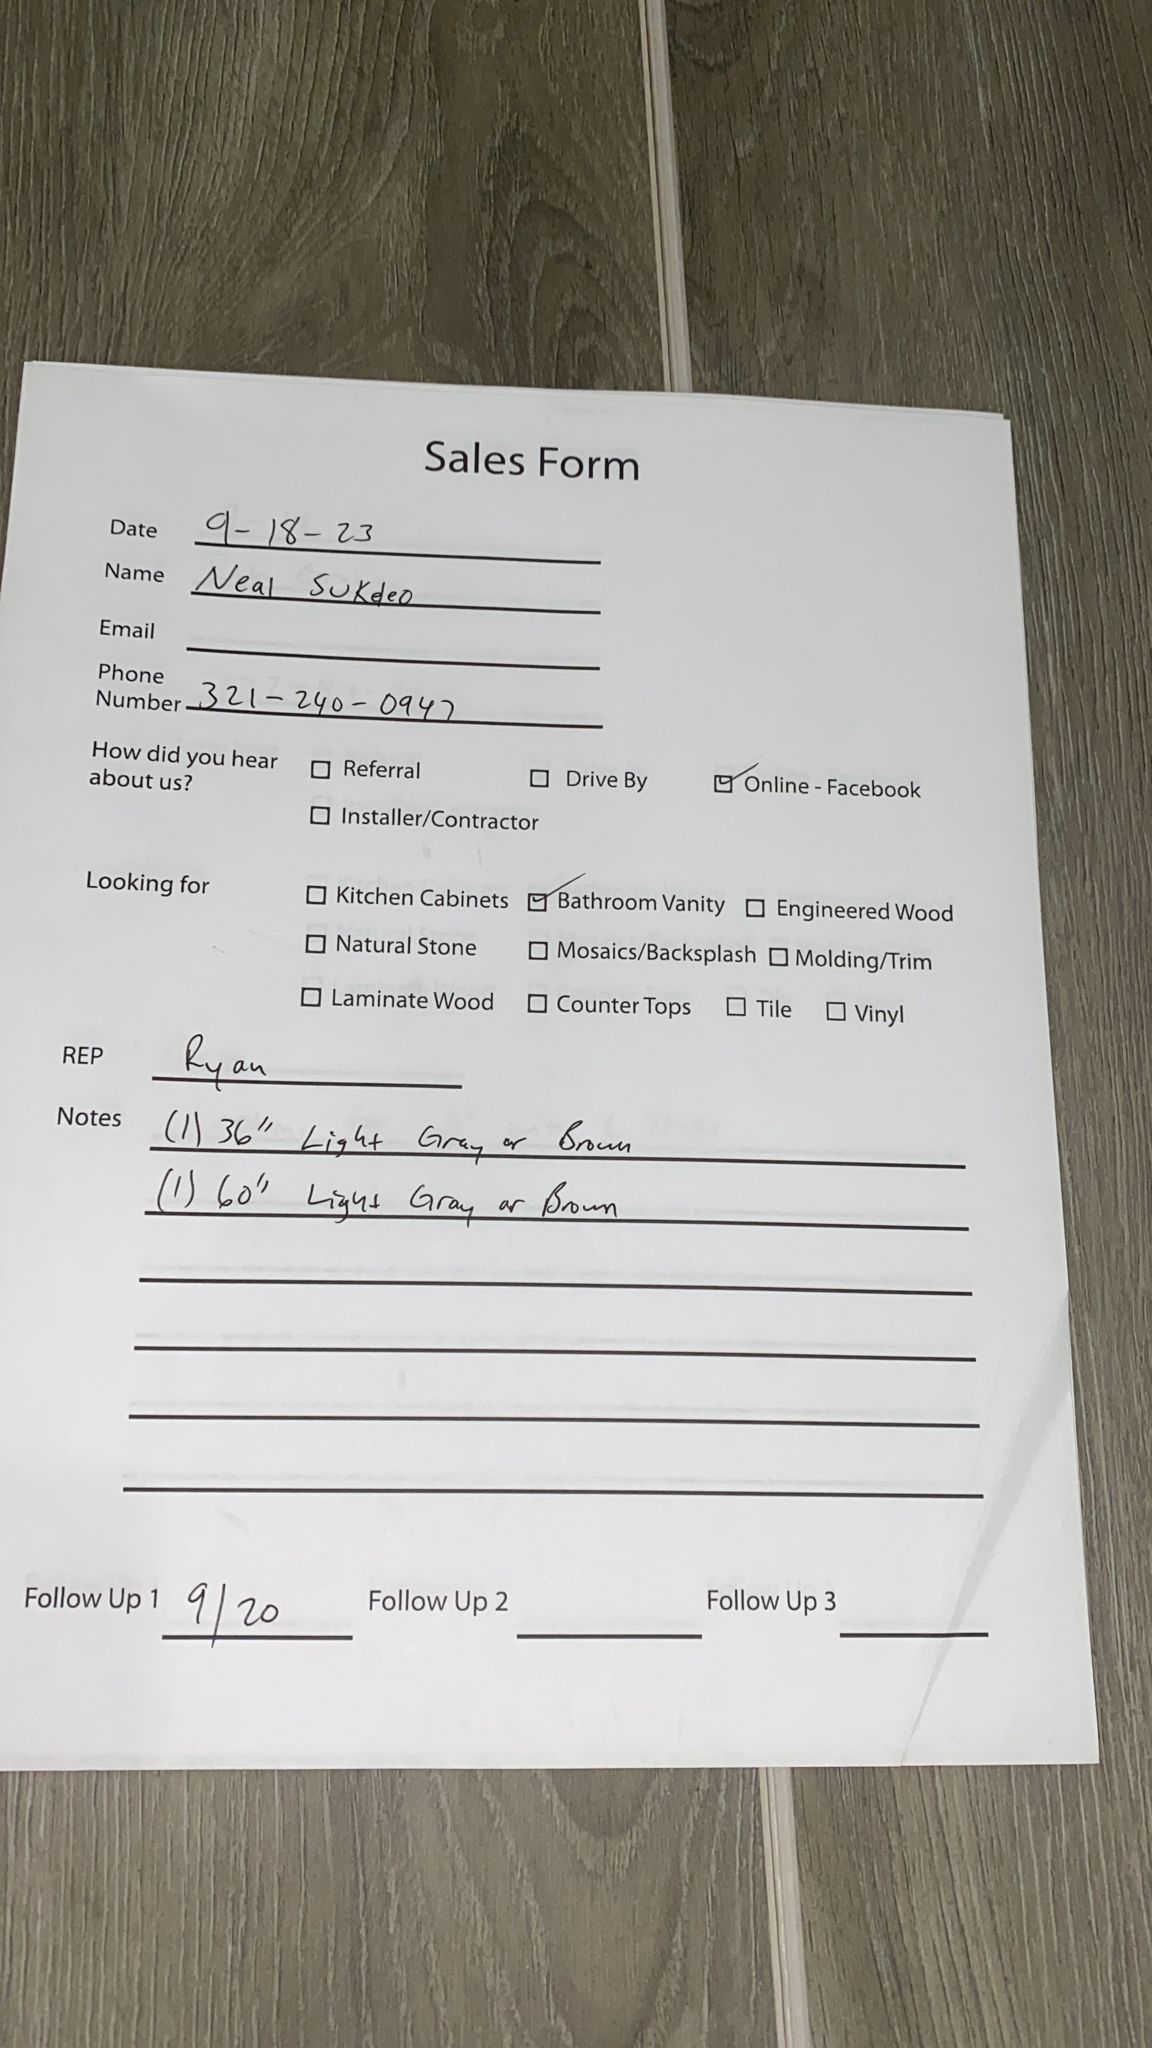 Sales Form
Date 9-18-23
Name Neal Sukdeo
Email
Phone
Number 321-240-0947
How did you hear
about us?
Referral Drive By Online - Facebook
Installer/Contractor
Looking for
Kitchen Cabinets Bathroom Vanity Engineered Wood
Natural Stone Mosaics/Backsplash Molding/Trim
Laminate Wood Counter Tops Tile Vinyl
REP Ryan
Notes (1) 36" Light Gray or Brown
(1) 60" Light Gray or Brown
Follow Up 1 9/20 Follow Up 2 Follow Up 3